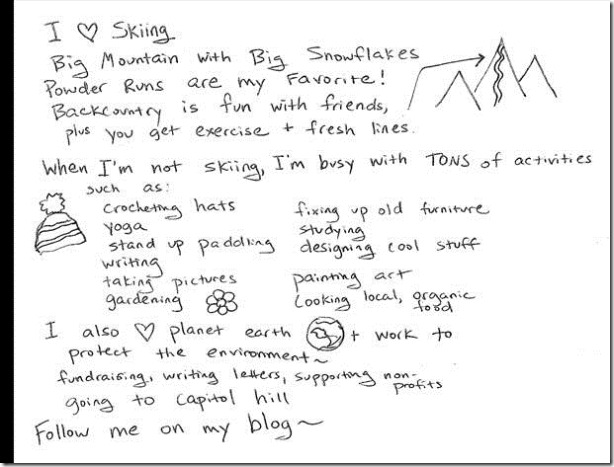 I ♡ Skiing
Big Mountain with Big Snowflakes
Powder Runs are my Favorite!
Backcountry is fun with friends,
plus you get exercise + fresh lines.
When I'm not skiing, I'm busy with TONS of activities
such as:
crocheting hats
yoga
stand up paddling
writing
taking pictures
gardening
fixing up old furniture
studying
designing cool stuff
painting art
Cooking local, organic
food
I also ♡ planet earth + work to
protect the environment~
fundraising, writing letters, supporting non-
profits
going to Capitol hill
Follow me on my blog~